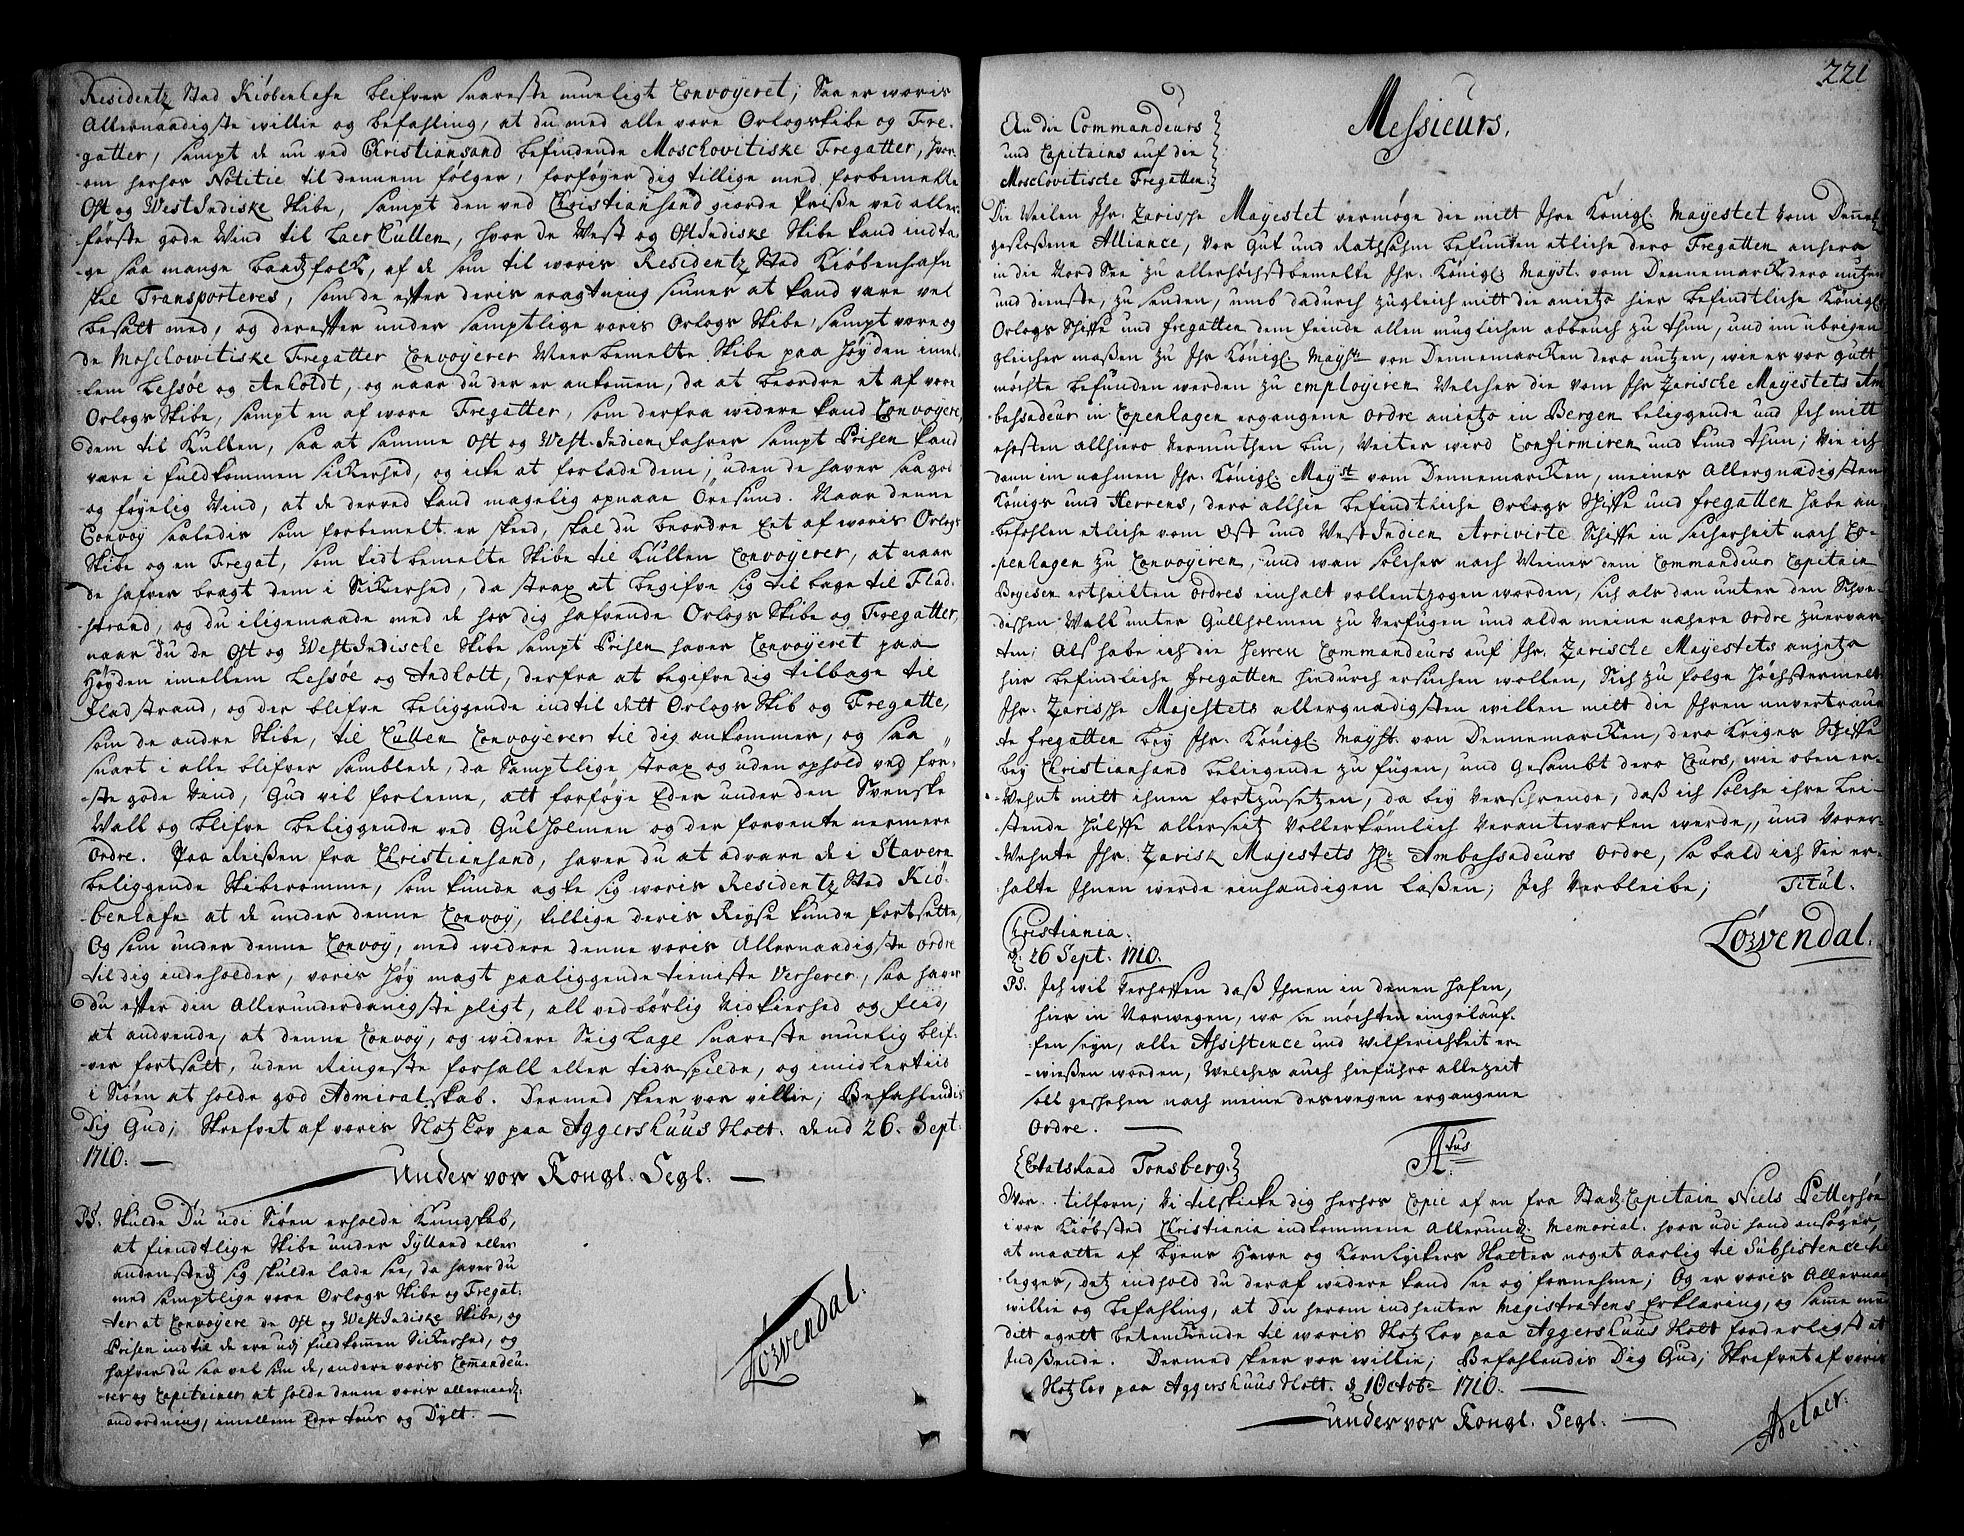 Residentz Stad Kiöbenhafn blifver snareste mueligt Convoyeret; Saa er woris
Allernaadigste willie og befahling, at du med alle vore Orlogskibe og Fre-
gatter, sampt de nu ved Christiansand befindende Moschovitiske Fregatter, hvor-
om herhos Notitie til dennem følger, forføyer dig tillige med forbemelte
Ost og WestIndiske Skibe, sampt den ved Christiansand giorde Prise ved aller-
første gode Wind til Laer Cullen, hvor de West og OstIndiske Skibe kand indta-
ge saa mange baadtzfolck, af de som til woris Residentz Stad Kiöbenhafn
skal Transporteres, som de efter deris eragtning siunes at kand vare vel
besatt med, og derefter under samptlige voris Orlogs Skibe, sampt vore og
de Moschowitiske Fregatter Convoyerer Meerbemelte Skibe paa Høyden imel-
lem Lessøe og Anholdt, og naar du der er ankommen, da at beordre et af vore
Orlogs Skibe, sampt en af wore Fregatter, som derfra widere kand Convoyere
dem til Kullen, saa at samme Ost og West-Indien fahrer sampt Prisen kand
vare i fuldkommen sickerhed, og icke at forlade dem, uden de haver saa god
og føyelig Wind, at de derved kand magelig opnaae Öresund. Naar denne
Convoy saaledis som forbemelt er skeed, skal du beordre Eet af woris Orlogs
Skibe og en Fregat, som tidtbemelte Skibe til Kullen Convoyerer, at naar
de hafver bragt dem i Sickerhed, da strax at begifve sig til bage til Flad-
strand, og du iligemaade med de hos dig hafvende Orlogs Skibe og Fregatter,
naar du de Ost og WestIndische Skibe sampt Prisen haver Convoyeret paa
Høyden imellem Lessøe og Andholt, derfra at begifve dig tilbage til
Fladstrand, og der blifve beliggende indtil dett Orlogs Skib og Fregatte,
som de andre Skibe, til Cullen Convoyerer til dig ankommer, og saa
snart i alle blifver samblede, da Samptlige strax og uden ophold ved for-
ste gode Vand, Gud vil forleene, att forføye Eder under den Svenske
Wall og blifve beliggende ved GulHolmen og der forvente nermere
Ordre. Paa Reisen fra Christiansand, haver du at advare de i Stavern
beliggende Skiberomme, som kunde agte sig woris Residentz Stad Kiö-
benhafn at de under denne Convoy, tillige deris Reyse kunde fortsette,
Og som under denne Convoy, med widere denne voris Allernaadigste Ordre
til dig indeholder, voris Høy magt paaliggende tieniste Verserer, saa haver
du efter den Allerunderdanigste pligt, all vedbørlig Vidkierhed og flid,
at anvende, at denne Convoy, og widere Seiglage snareste muelig blif-
ver fortsatt, uden Ringeste forhall eller tidspilde, og imidlertiid
i Siøen at holde god Admiralskab. Dermed skeer vor villie; Befahlendis
Dig Gud; Skrefvet af voris Slotz Lov paa Aggershuus Slott. dend 26. Sept.
1710.
Under vor Kongl. Segl.
PS. Skulde Du udi Siøen erholde Kundskab,
at fiendtlige Skibe under Jylland eller
andenstedz sig skulde lade see, da haver du
med samptlige vore Orlogs Skibe og Fregat-
ter at Convoyere de Ost og WestIndiske Skibe, og
Prisen indtil de ere udj fuldkommen Sickerhed, og
hafver du saa vel som de, andere voris Commandeu-
rer og Capitainer at holde denne voris allernaadz:
andordning, imellem Eder taus og Dylt.
Löwendal.

221
An die Commandeurs
und Capitains auf die
Moschovitische Fregatten.
Messieurs.
Die Weilen Ihr. Zarische Mayestet vermøge die mitt Ihre Königl. Mayestet vom Dennem:
geslossene Alliance, vor Gut und Rathsahm befunden etliche dero Fregatten anhero
in die Nord See zu allerhöchstbemelte Ihr. Königl. Mayst. vom Dennemarck dero nutzen
und dienste, zu senden, umb dadurch zugleich mitt die anietzo hier befindtliche Königl.
Orlogs Schiffe und fregatten dem feinde allen muglichen abbruch zu thun, und im ubrigen
gleicher masen zu Ihr Königl. Mayst. von Dennemarcken dero nutzen, wie er vor gutt
möchte befunden werden zu employeren Welches die vom Ihr Zarische Mayestets Am-
bassadeur in Copenhagen ergangene Ordre anietzo in Bergen beliggende und Ich mitt
ehesten allhiero vermuthen bin, Weiter wird Confirmiren und kund thun; Wie ich
dann im nahmen Ihr. Königl. Mayst. vom Dennemarcken, meines Allergnädigsten
Königs und Herrens, dero allhie befindtliche Orlogs Schiffe und fregatten habe an-
befohlen etliche vom Ost und West Indien Arrivirte Schiffe en sicherheit nach Co-
penhagen zu Convoyiren, und wan solches nach Meines dem Commandeur Capitain
Boyesen ertheilten Ordres einhalt vollentzogen worden, sich als dan unter den Schve-
dischen Wall unter Gullholmen zu verfugen und alda meine nähere Ordre zuerwar-
ten; Als habe ich die Herren Commandeurs auf Ihr. Zarische Mayestets anjetzo
hier befindliche fregatten hiedurch ersuchen wollen, Sich zu folge Höchstermelt.
Ihr. Zarische Majestets allergnädigsten willen mitt die Ihren anvertrau-
te fregatten bey Ihr. Königl. Mayst. von Dennemarcken, dero Kriges Schiffe
bey Christiansand beliegende zu fügen, und Gesambt dero Cours, wie oben er-
wehnt mitt ihnen fortzusetzen, da bey versichrende, daß ich solche ihre Lei-
stende Hülffe allerseitz vollerkömlich verantwarten werde, und vorer-
wehnte Ihr. Zarisk Majestets Hr. Ambassadeurs Ordre, so bald ich Sie er-
halte Ihnen werde einhandigen laßen; Ich verbleibe; Titul.
Christiania.
d. 26 Sept. 1710.
Löwendal.
PS. Ich wil verhoffen daß Ihnen in denen Hafen,
hier in Norwegen, wo sie möchten eingelauf-
fen seyn, alle Assistence und wilferichkeit er-
wießen worden, Welches auch hinführo allezeit
soll geschehen nach meine deswegen ergangene
Ordre.
Atus
Etatsraad Tonsberg.
Vor. tilforn; Vi tilskicke dig herhos Copie af en fra Stadz Capitain Niels Pettersøn
i vor Kiöbsted Christiania indkommene Allerund. Memorial. hvor udi hand ansøger,
at maatte af Byens Havne og Kornlyckers Skatter noget Aarlig til Subsistence til-
legges, detz indhold du deraf widere kand see og fornehme; Og er voris Allernaad.
willie og befahling, at Du herom indhenter Magistratens Erklæring, og samme med
ditt egett betenckende til woris Slotz Lov paa Aggershuus Slott forderligst at
Indsende. Dermed skeer vor willie; Befahlendis Dig Gud; Skrefvet af voris
Slotz Lov paa Aggershuus Slott. d. 1 Octobr. 1710.
Under vor Kongl. Segl.
Adelaer.